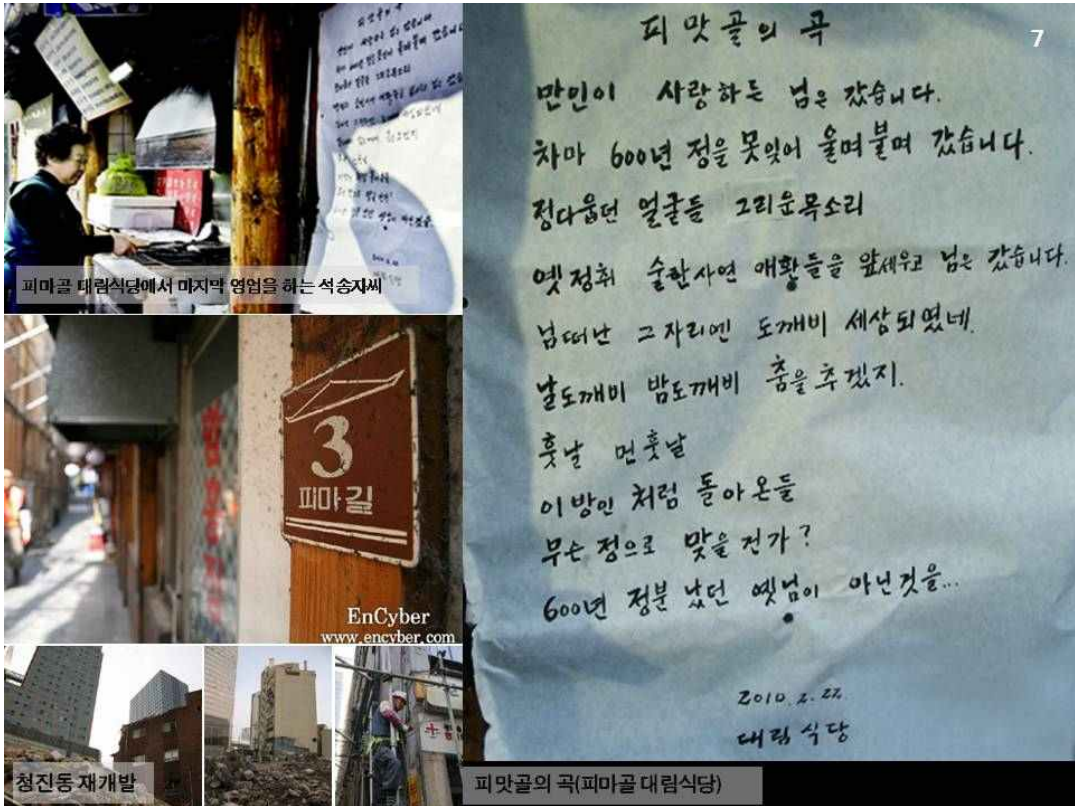 피마골 대림식당에서 마지막 영업을 하는 석송자씨
3
피마길
EnCyber
www.encyber.com
청진동 재개발
7
피맛골의 곡
만인이 사랑하든 님은 갔습니다.
차마 600년 정을 못잊어 울며불며 갔습니다.
정다웁던 얼굴들 그리운목소리
옛정취 숱한사연 애환들을 앞세우고 님은 갔습니다.
님떠난 그자리엔 도깨비 세상되였네.
날도깨비 밤도깨비 춤을추겠지.
훗날 먼훗날
이방인처럼 돌아온들
무슨 정으로 맞을건가?
600년 정분 났던 옛님이 아닌것을...
2010.2.22
대림식당
피맛골의 곡(피마골 대림식당)